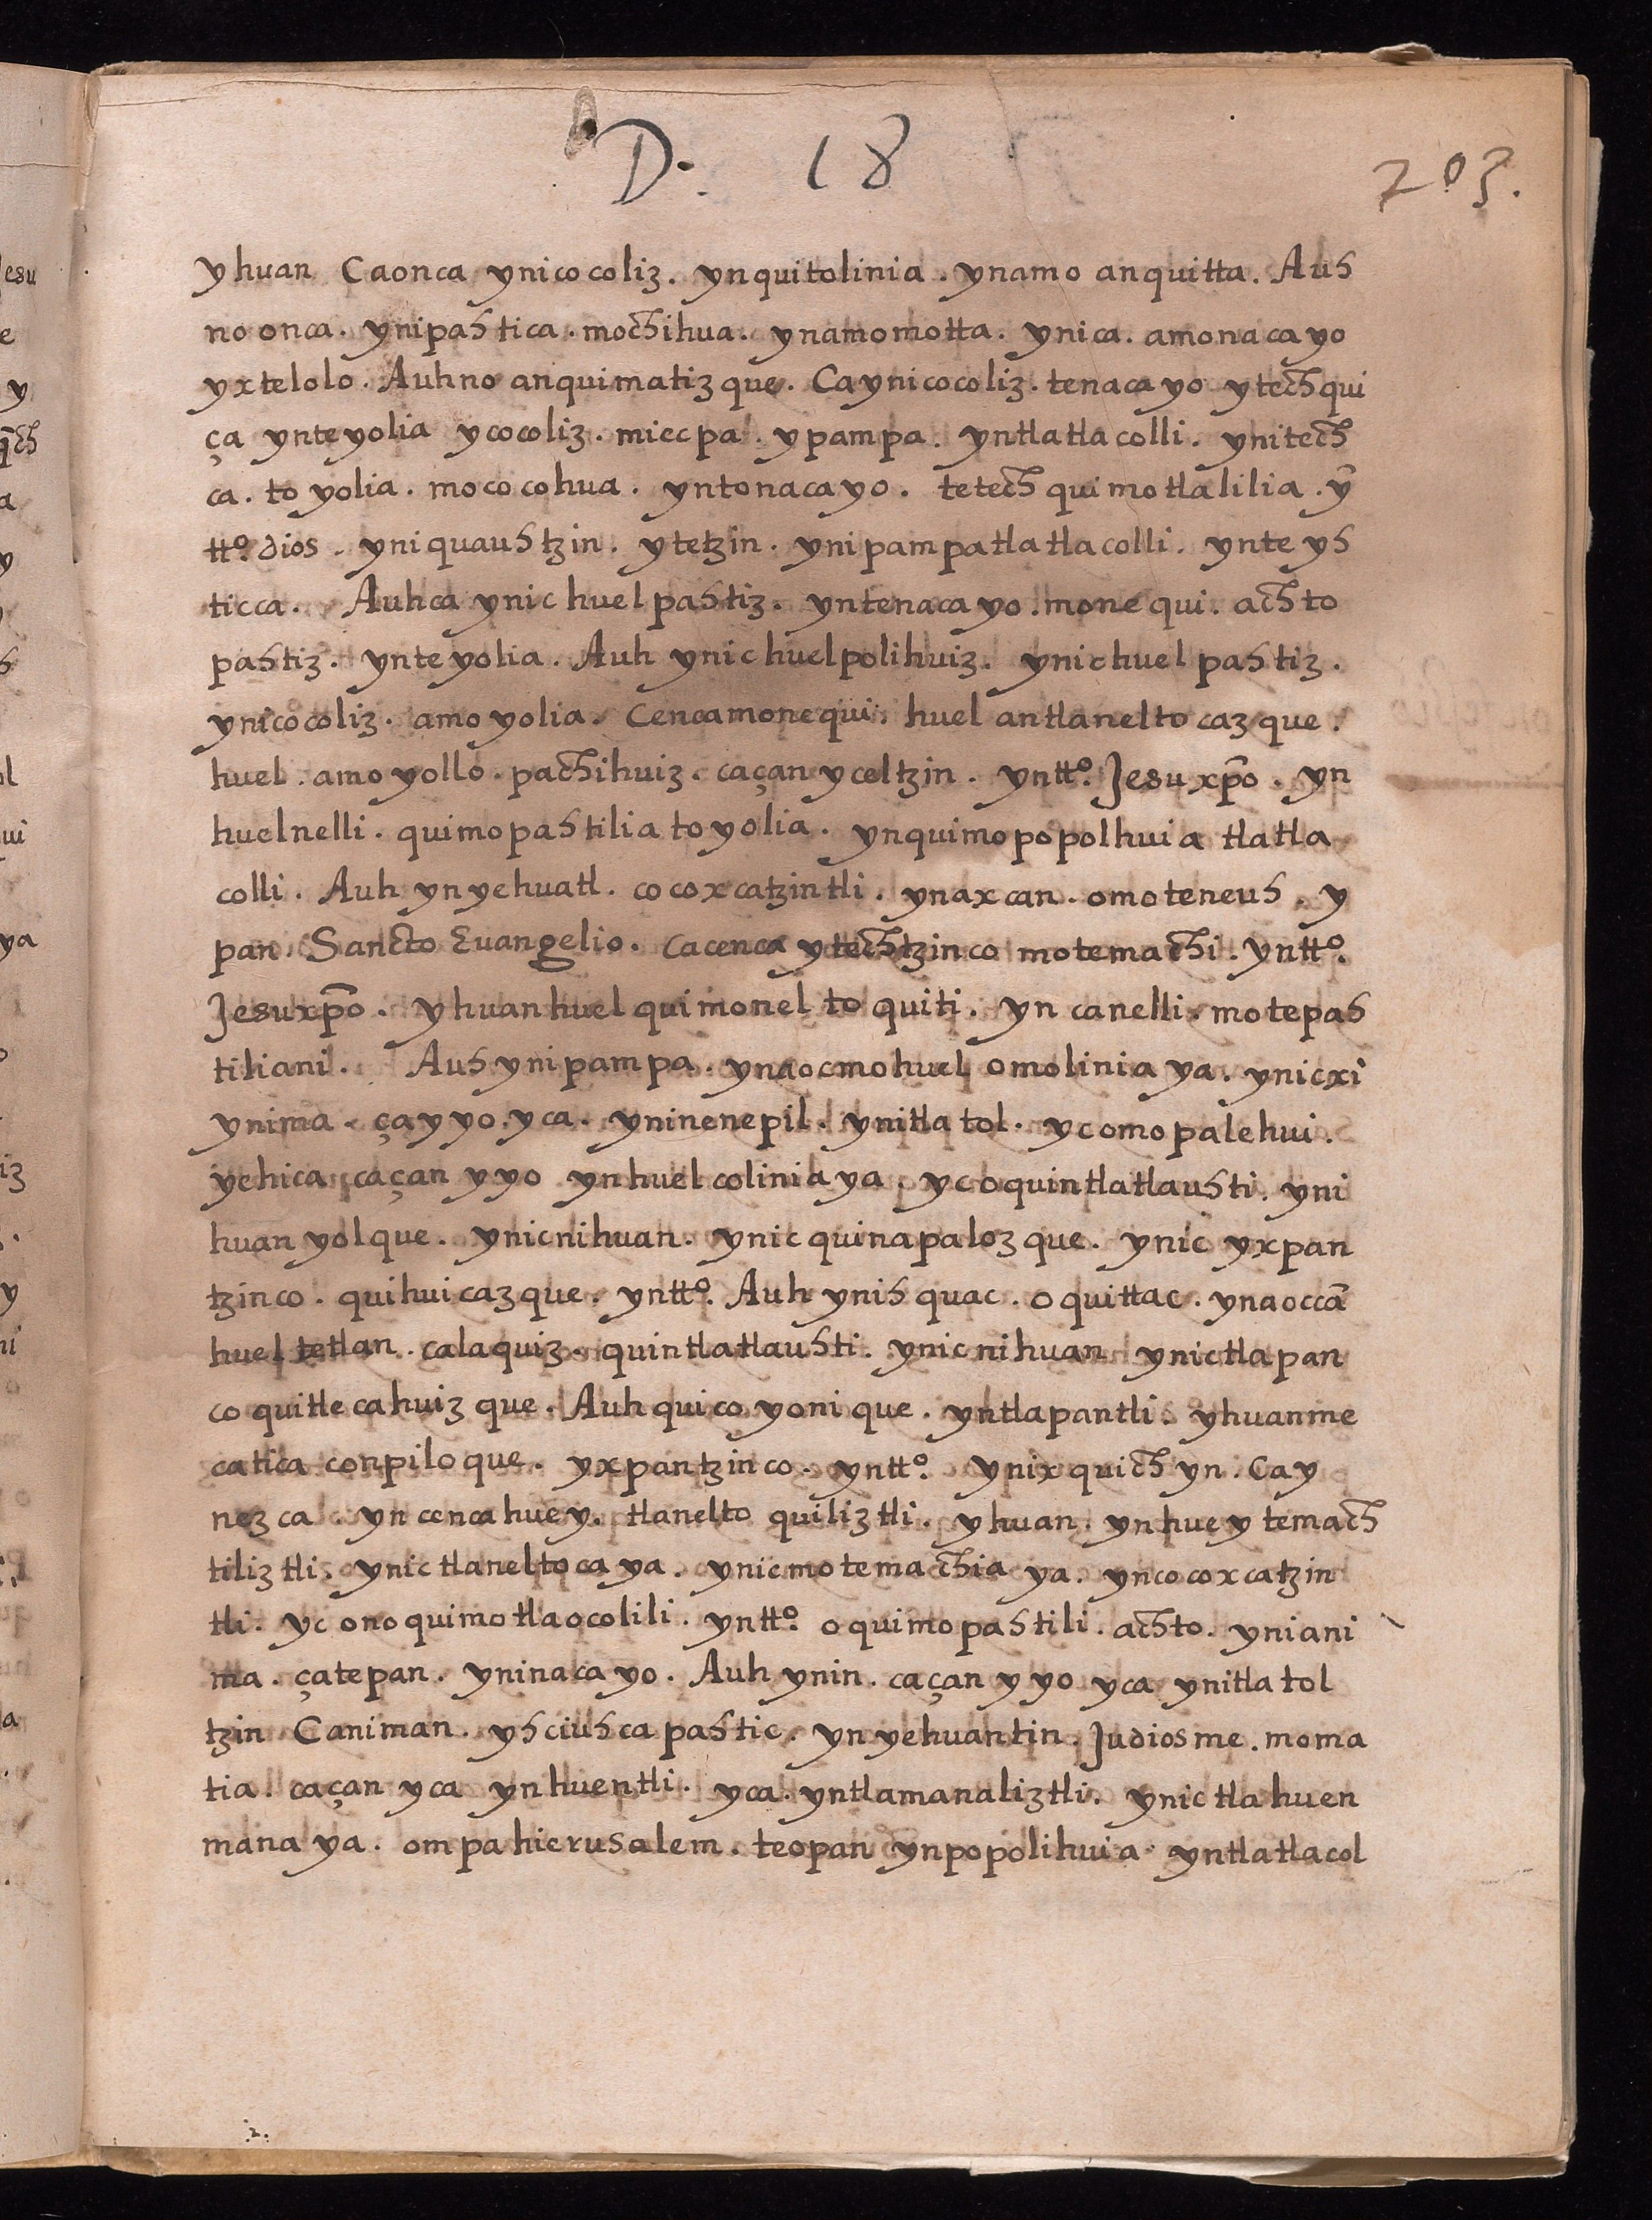 D. 18
203.
yhuan Caonca ynicocoliz. ynquitolinia. ynamo anquitta. Auh
no onca. ynipahtica. mochihua. ynamomotta. ynica. amonacayo
yxtelolo. Auhno anquimatizque. Caynicocoliz. tenacayo ytechqui
ça ynteyolia ycocoliz. miecpa. ypampa. yntlatlacolli. ynitech
ca. toyolia. mococohua. yntonacayo. tetech quimotlalilia. yn̄
tt.º dios. yniquauhtzin. ytetzin. ynipampatlatlacolli. ynteyh
ticca. Auhca ynic huelpahtiz. yntenacayo. monequi. achto
pahtiz. ynteyolia. Auh ynichuelpolihuiz. ynichuel pahtiz.
ynicocoliz. amoyolia. Cencamonequi. huel antlaneltocazque.
huel. amoyollo. pachihuiz. caçan yceltzin. yntt.º Jesuxp̄o. yn
huelnelli. quimopahtilia toyolia. ynquimopopolhuia tlatla
colli. Auh ynyehuatl. cocoxcatzintli. ynaxcan. omoteneuh. y
pan Sancto Euangelio. cacenca ytechtzinco motemachi. yntt.º
Jesuxp̄o. yhuanhuel quimoneltoquiti. yn canelli. motepah
tiliani. Auh ynipampa. ynaocmohuel omoliniaya. ynicxi
ynima. çayyo. yca. yninenepil. ynitlatol. ycomopalehui.
yehica caçan yyo ynhuel coliniaya. ycoquintlatlauhti. yni
huanyolque. ynicnihuan. ynic quinapalozque. ynic yxpan
tzinco. quihuicazque. yntt.º Auh ynihquac. oquittac. ynaoccā
huel tetlan. calaquiz. quintlatlauhti. ynicnihuan ynictlapan
co quitlecahuizque. Auh quicoyonique. yntlapantli. yhuanme
catica conpiloque. yxpantzinco. yntt.º ynixquich yn. Cay
nezca. yn cencahuey. tlaneltoquiliztli. yhuan. ynhuey temach
tiliztli. ynictlaneltocaya. ynicmotemachiaya. yncocoxcatzin
tli. yc onoquimotlaocolili. yntt.º oquimopahtili. achto. yniani
ma. çatepan. yninacayo. Auh ynin. caçan yyo yca ynitlatol
tzin Caniman. yhciuhca pahtic. yn yehuantin. Judiosme. moma
tia. caçan yca ynhuentli. yca. yntlamanaliztli. ynictlahuen
manaya. ompahierusalem. teopan ynpopolihuia yntlatlacol
.2.